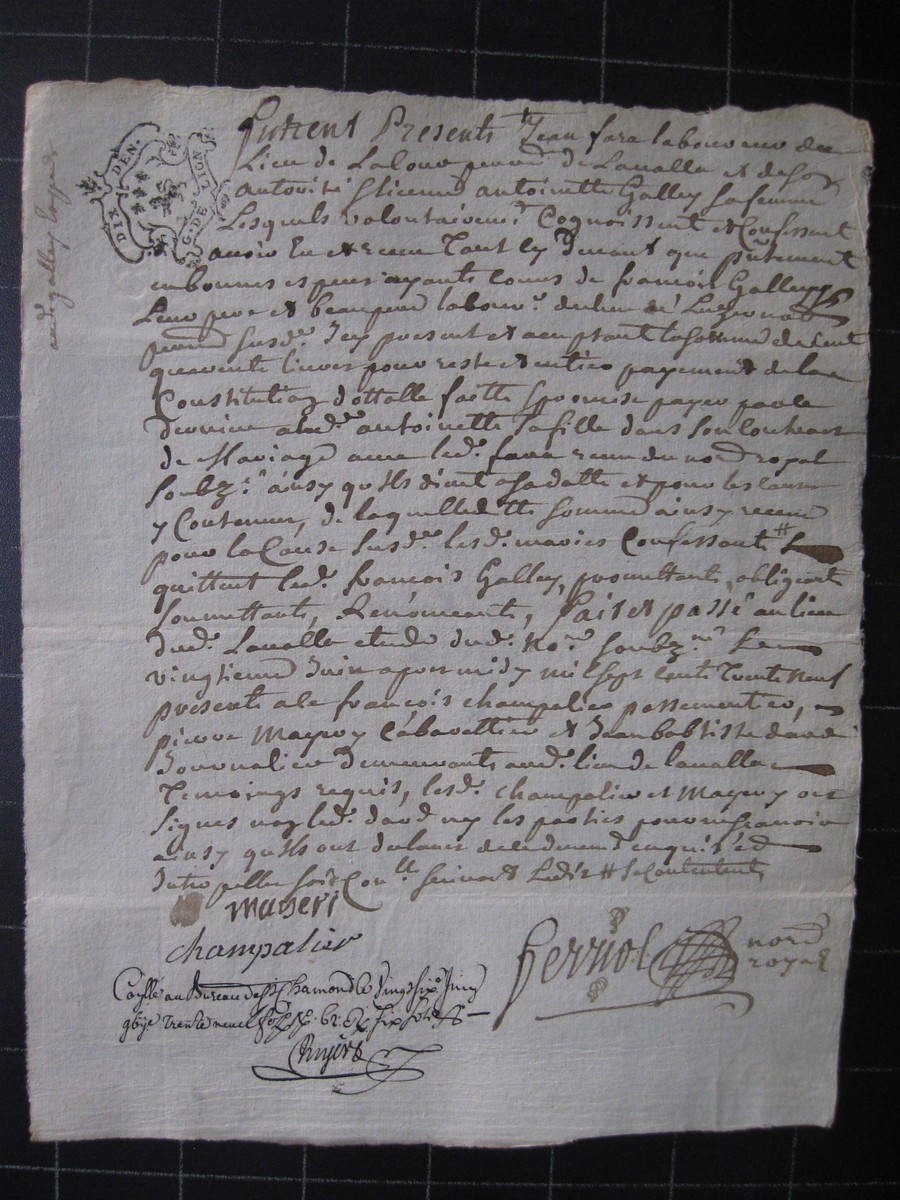 DIX DEN.
G. DE LION
Furent Presents Jean fara laboureur du
Lieu de Laloue parr. de Lavalla et de son
autorité licence antoinette Galley sa femme
Lesquels volontairement Cognoissent et Confessent
avoir Eu et receu Tant cy devant que pntement
en bonnes especes ayants cours de françois Galley
Leur pere et beaupere labour. du lieu de
parr. susd. Icy present et acceptant la somme de Cent
quarente livres pour reste et entier payement de la
Constitution dottalle faitte promise payer par le
dernier a lad. antoinette sa fille dans son Contract
de Mariage avec led. fara receu du no.re royal
soubz.né ainsy qu'ils disent a sa datte et pour les causes
y Contenues, de laquelle ditte somme ainsy receue
pour la Cause susd. lesd. maries Confessants #
quittent led. françois Galley, promettants, obligeants
soumettants, Renonceants, fait et passé au lieu
dud. Lavalla etude dud. No.re soubz.né Le
vingtieme Juin apres midy mil sept cent Trente Neuf
presents a ce françois champalier passementier,
pierre Mayery Cabarettier et Jean baptiste david
Journalier demeurants aud. lieu de lavalla
Temoings requis, lesd. champalier et Mayery ont
signes non led. david ny les parties pour ne sçavoir
ainsy qu'ils ont declaré de ce duement enquis et
Interpelles soit Con.llé suivant Ledit # se Contentent
mayeri
champalier
ferriol nore
royal
Con.llé au Bureau de St Chamond le Vingt six.e Juin
gbije trente neuf fo. 62 six sols